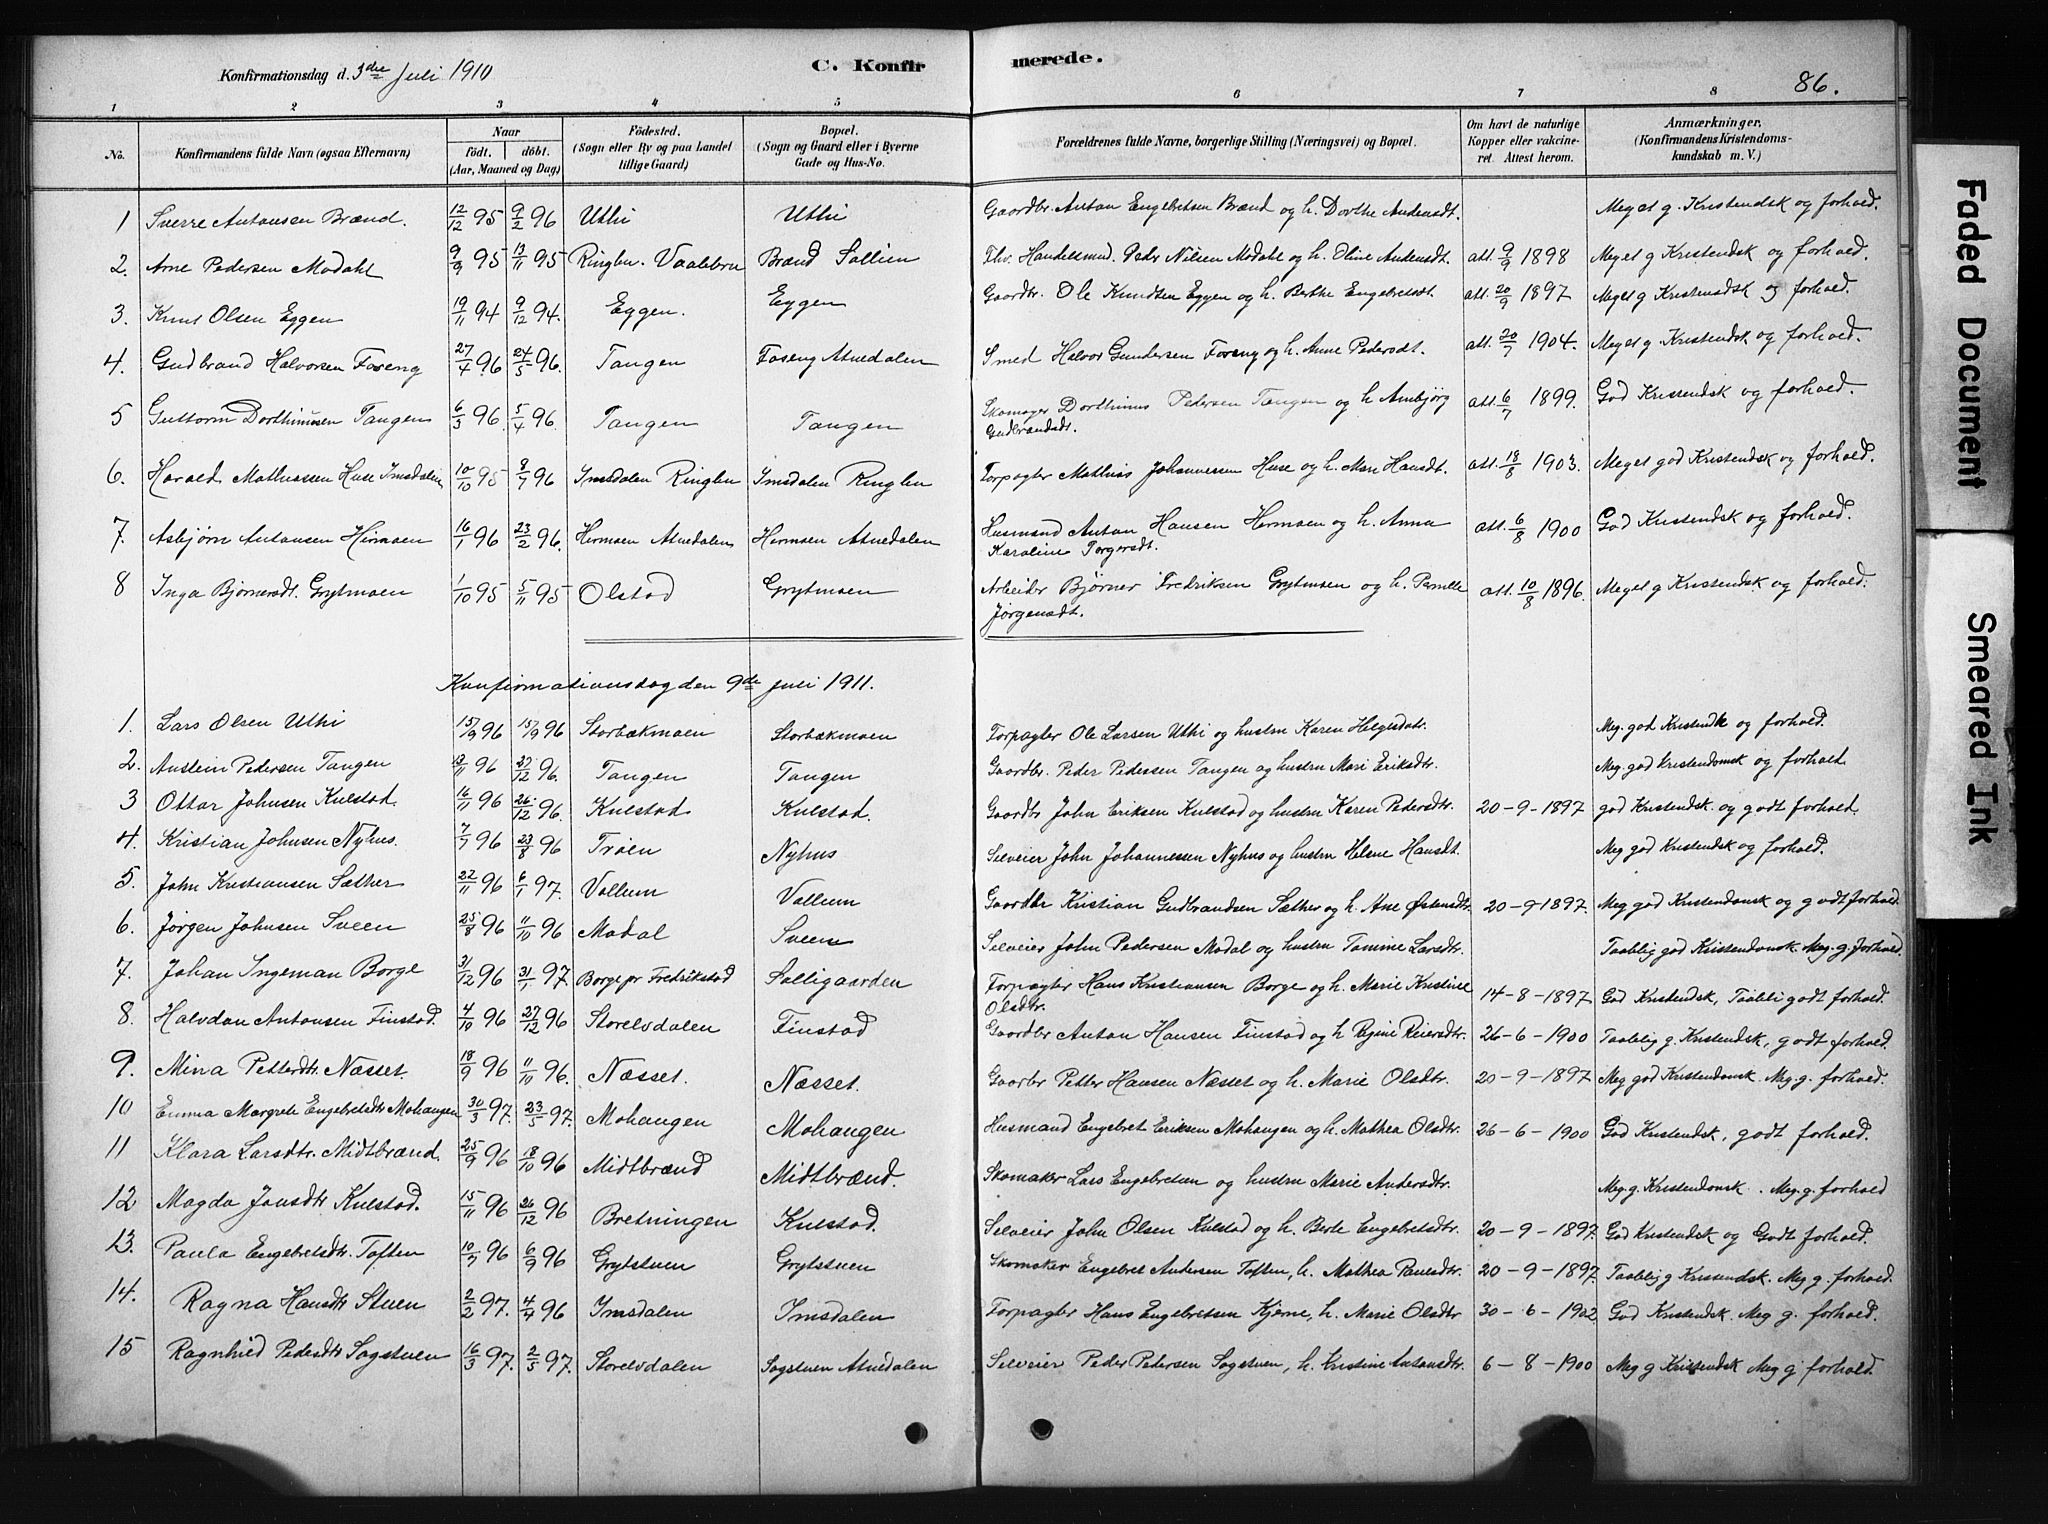 Konfirmationsdag d. 3die Juli 1910
C. Konfirmerede.
86.
1 2 3 4 5 6 7 8
No.
Konfirmandens fulde Navn (ogsaa Efternavn)
Naar
födt. döbt.
(Aar, Maaned og Dag)
Födested.
(Sogn eller By og paa Landet
tillige Gaard)
Bopæl.
(Sogn og Gaard eller i Byerne
Gade og Hus-No.
Forældrenes fulde Navne, borgerlige Stilling (Næringsvei) og Bopæl.
Om havt de naturlige
Kopper eller vakcine-
ret. Attest herom.
Anmærkninger.
(Konfirmandens Kristendoms-
kundskab m. V.)
1 Sverre Antonsen Brænd. 12/12 95 9/2 96 Uthi Uthi Gaardbr. Anton Engebretsen Brænd og h. Dorthe Andersdt. Meget g. Kristendsk og forhold.
2. Arne Pedersen Modahl 9/9 95 13/11 95 Ringbu. Vaalebru Brænd Sollien Fhv. Handelsmd. Peder Nilsen Modahl og h. Oline Andersdt. att. 9/9 1898 Meget g Kristendsk og forhold.
3. Knut Olsen Eggen 19/11 94 9/12 94. Eggen. Eggen Gaardbr. Ole Knudsen Eggen og h. Berthe Engebretsdt. att. 20/9 1897 Meget g Kristendsk og forhold.
4. Gudbrand Halvorsen Foseng 27/4 96. 24/5 96. Tangen Foseng Atnedalen Smed Halvor Gundersen Foseng og h. Anne Pedersdt. att. 20/7 1904. Meget g. Kristendsk og forhold.
5 Guttorm Dorthinusen Tangen 6/3 96. 5/4 96. Tangen Tangen Skomager Dorthinus Pedersen Tangen og h Ambjørg
Gudbrandsdt. att. 6/7 1899. God Kristendsk og forhold.
6. Harald Mathiassen Huse Imsdalen 10/10 95 8/7 96 Imsdalen Ringbu Imsdalen Ringbu Forpagter Mathias Johannessen Huse og h. Mari Hansdt. att. 18/8 1903. Meget god Kristendsk og forhold.
7. Asbjørn Antonsen Hirmoen 16/1 96 23/2 96. Hermoen Atnedalen Hermoen Atnedalen Husmand Anton Hansen Hermoen og h. Anna
Karoline Torgersdt. att. 6/8 1900 God Kristendsk og forhold.
8 Inga Bjørnersdt. Grytmoen 1/10 95 5/11 95 Olstad Grytmoen Arbeider Bjørner Fredriksen Grytmoen og h. Pernille
Jørgensdt. att. 10/8 1896. Meget g. Kristendsk og forhold.
Konfirmationsdag den 9de Juli 1911.
1. Lars Olsen Uthi 15/9 96 15/9 96 Storbækmoen Storbækmoen Forpagter Ole Larsen Uthi og hustru Karen Helgesdtr. Meg. god Kristendk og forhold.
2. Anstein Pedersen Tangen 13/11 96 27/12 96. Tangen Tangen Gaardbr. Peder Pedersen Tangen og hustru Mari Eriksdtr. Meg. god Kristendomsk og forhold
3 Ottar Johnsen Kulstad. 16/11 96 26/12 96. Kulstad Kulstad. Gaardbr John Eriksen Kulstad og hustru Karen Pedersdtr. 20-9-1897 god Kristendsk. og godt forhold.
4. Kristian Johnsen Nyhus. 7/7 96 23/8 96 Trøen Nyhus Selveier John Johannessen Nyhus og hustru Helene Hansdt. Meg god Kristendsk og forhold.
5. John Kristiansen Sæther 22/11 96 6/1 97. Vollum Vollum Gaardbr Kristian Gudbrandsen Sæther og h. Ane Østensdtr. 20-9-1897. Meg god Kristendomsk og godt forhold.
6. Jørgen Johnsen Sveen 25/8 96 11/10 96 Modal Sveen Selveier John Pedersen Modal og hustru Tomine Larsdtr. Taablig god Kristendomsk. Meg. g. forhold.
7. Johan Ingeman Borge 31/12 96 31/1 97 Borge pr Fredrikstad Solligaarden Forpagter Hans Kristiansen Borge og h. Marie Kristine
Olsdtr. 14-8-1897 God Kristendsk, Taabli godt forhold.
8. Halvdan Antonsen Finstad. 4/10 96 27/12 96 Storelvdalen Finstad Gaardbr Anton Hansen Finstad og h Regine Reiersdtr. 26-6-1900 Taablig g. Kristendsk, godt forhold.
9. Mina Petterdtr Næsset. 18/9 96 11/10 96. Næsset. Næsset. Gaardbr Petter Hansen Næsset og h. Marie Olsdtr. 20-9-1897 Meg god Kristendomsk. Meg. g. forhold.
10 Emma Margrete Engebretsdtr Mohaugen 30/3 97. 23/5 97. Mohaugen Mohaugen Husmand Engebret Eriksen Mohaugen og h. Mathea Olsdtr. 26-6-1900 God Kristendsk, godt forhold.
11 Klara Larsdtr. Midtbrænd. 25/9 96 18/10 96 Midtbrænd Midtbrænd. Skomaker Lars Engebretsen og hustru Marie Andersdtr. Meg. g. Kristendomsk. Meg. g. forhold
12 Magda Jonsdtr Kulstad. 15/11 96 26/12 96 Bretningen Kulstad. Selveier John Olsen Kulstad og h. Berte Engebretsdtr. 20-9-1897. God Kristendsk og Godt forhold.
13. Paula Engebretsdtr. Toften 10/7 96 6/9 96 Grytstuen Grytstuen Skomaker Engebret Andersen Toften, h. Mathea Paulsdtr. 20-9-1897. Taablig g Kristendsk. Meg g. forhold.
14. Ragna Hansdtr Stuen 2/2 97. 4/4 96 Imsdalen Imsdalen Forpagter Hans Engebretsen Kjerne, h. Marie Olsdtr 30-6-1902. God Kristendsk. Meg g. forhold.
15 Ragnhild Pedersdtr Sagstuen 16/3 97. 2/5 97. Storelvdalen Sagstuen Atnedalen Selveier Peder Pedersen Sagstuen, h. Kristine Antonsdtr. 6-8-1900 Meg g Kristendsk Meg g forhold.
Faded Document
Smeared Ink